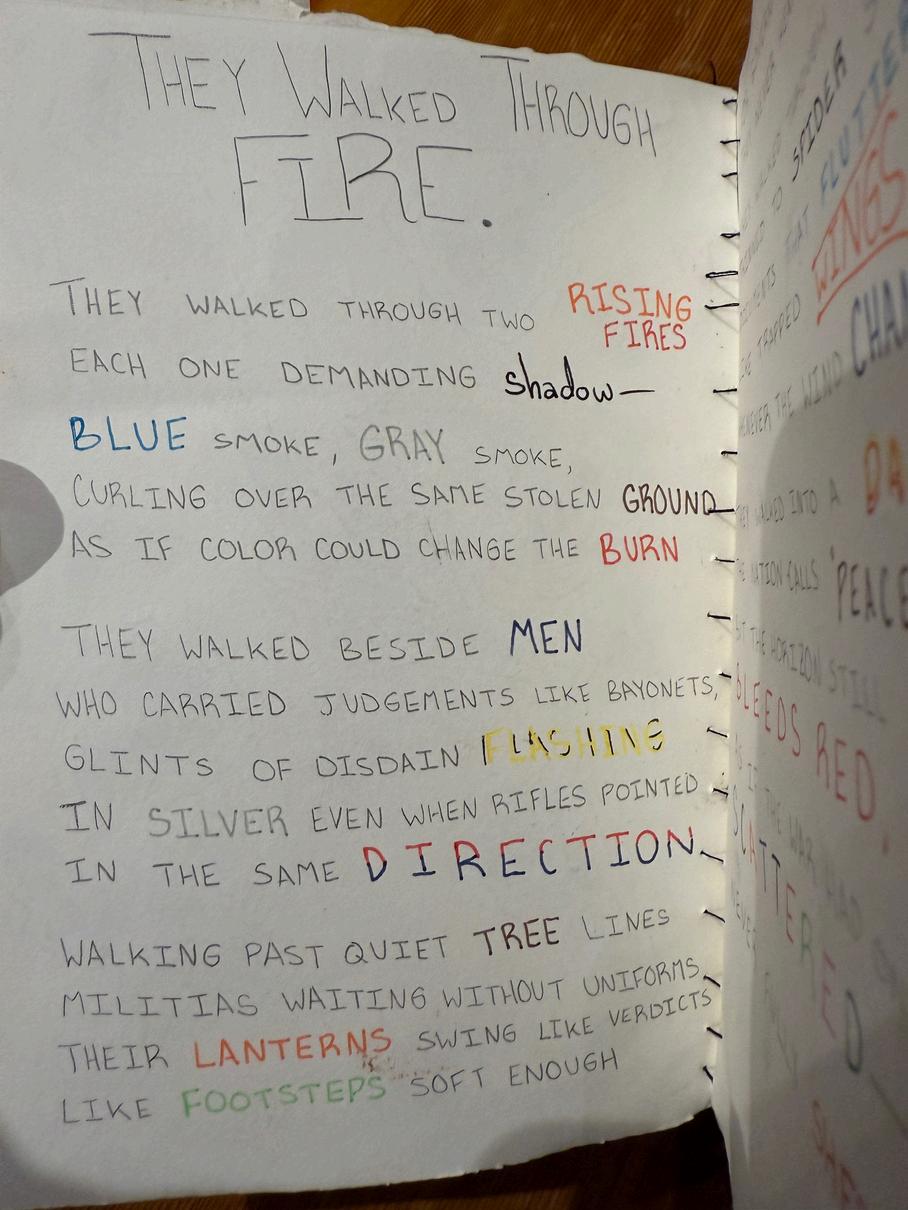 THEY WALKED THROUGH
FIRE.
THEY WALKED THROUGH TWO RISING
FIRES
EACH ONE DEMANDING shadow—
BLUE SMOKE, GRAY SMOKE,
CURLING OVER THE SAME STOLEN GROUND
AS IF COLOR COULD CHANGE THE BURN
THEY WALKED BESIDE MEN
WHO CARRIED JUDGEMENTS LIKE BAYONETS,
GLINTS OF DISDAIN FLASHING
IN SILVER EVEN WHEN RIFLES POINTED
IN THE SAME DIRECTION
WALKING PAST QUIET TREE LINES
MILITIAS WAITING WITHOUT UNIFORMS
THEIR LANTERNS SWING LIKE VERDICTS
LIKE FOOTSTEPS SOFT ENOUGH
SPIDER
THAT FLUTTER
WINGS
TRAPPED
WHENEVER THE WIND
WALKED INTO A
NATION CALLS "PEACE
THE HORIZON STILL
BLEEDS RED
THE WAR HAD
SCATTERED